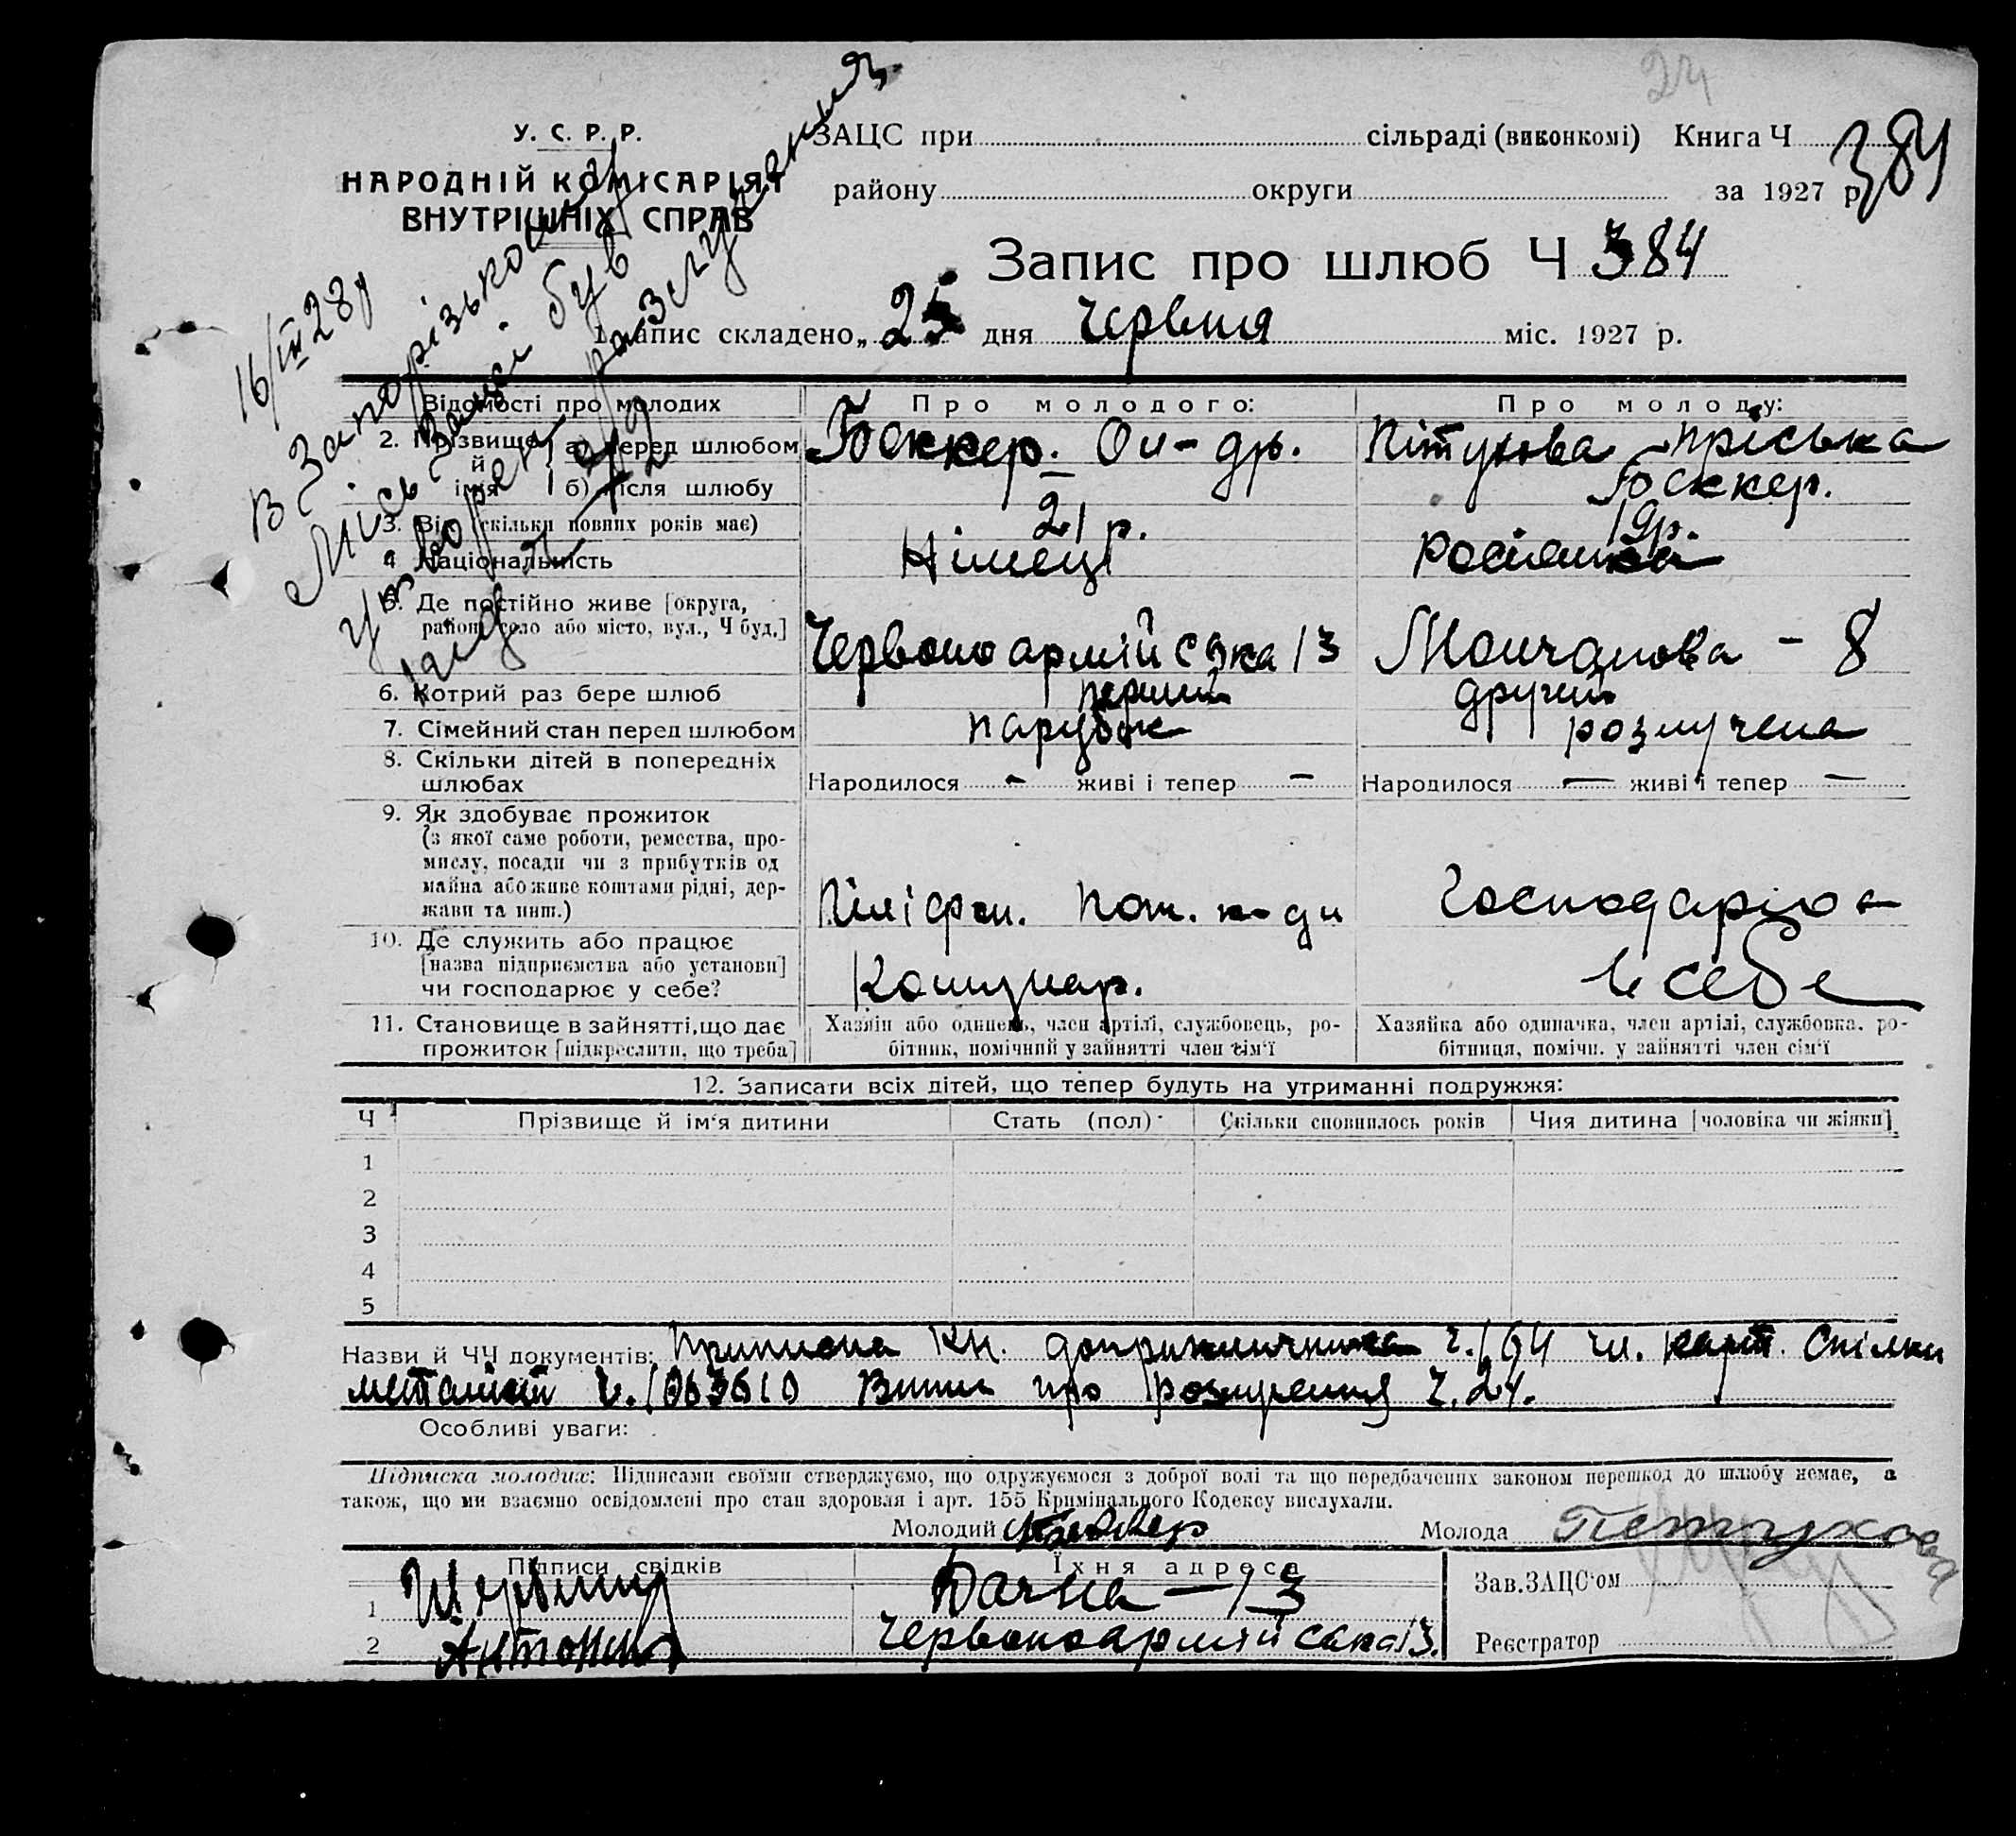 24
У. С. Р. Р.
НАРОДНІЙ КОМІСАРІЯТ
ВНУТРІШНІХ СПРАВ
ЗАЦС при сільраді (виконкомі) Книга Ч 384
району округи за 1927 р.
Запис про шлюб Ч 384
1. Запис складено „25 дня Червня міс. 1927 р.
16/ІХ 28 р
В Запорізькому
Місь Запсі був
розлучения
Відомості про молодих
Про молодого:
Про молоду:
2. Прізвище й ім'я
а) перед шлюбом
Беккер. Ол-др.
Пітухова Пріська
б) після шлюбу
Беккер.
3. Вік (скільки повних років має)
21 р.
19 р.
4. Національність
Німець
Росіянка
5. Де постійно живе [округа,
район, село або місто, вул., Ч буд.]
Червоноармійська 13
Мончанова - 8
6. Котрий раз бере шлюб
перший
другий
7. Сімейний стан перед шлюбом
парубок
розлучена
8. Скільки дітей в попередніх
шлюбах
Народилося - живі і тепер -
Народилося - живі і тепер -
9. Як здобуває прожиток
(з якої саме роботи, ремества, про-
мислу, посади чи з прибутків од
майна або живе коштами рідні, дер-
жави та инш.)
Госпoдарює
10. Де служить або працює
[назва підприємства або установи]
чи господарює у себе?
Комунар.
в себе
11. Становище в зайнятті, що дає
прожиток [підкреслити, що треба]
Хазяїн або одинець, член артілі, службовець, ро-
бітник, помічний у зайнятті член сім'ї
Хазяйка або одиначка, член артілі, службовка, ро-
бітниця, помічн. у зайнятті член сім'ї
12. Записати всіх дітей, що тепер будуть на утриманні подружжя:
Ч
Прізвище й ім'я дитини
Стать (пол)
Скільки сповнилось років
Чия дитина [чоловіка чи жінки]
1
2
3
4
5
Назви й ЧЧ документів: Приписна Кн. допризывника ч. 164 чл. карт. Спілки
металіст ч. 1063610 Витяг про розлучення ч. 24.
Особливі уваги:
Підписка молодих: Підписами своїми стверджуємо, що одружуємося з доброї волі та що передбачених законом перешкод до шлюбу немає, а
також, що ми взаємно освідомлені про стан здоровля і арт. 155 Кримінального Кодексу вислухали.
Молодий Беккер
Молода Петухова
Підписи свідків
Їхня адреса
1
Дачна - 13
2 Антоненко
Червоноармійська 13.
Зав. ЗАЦС'ом
Реєстратор